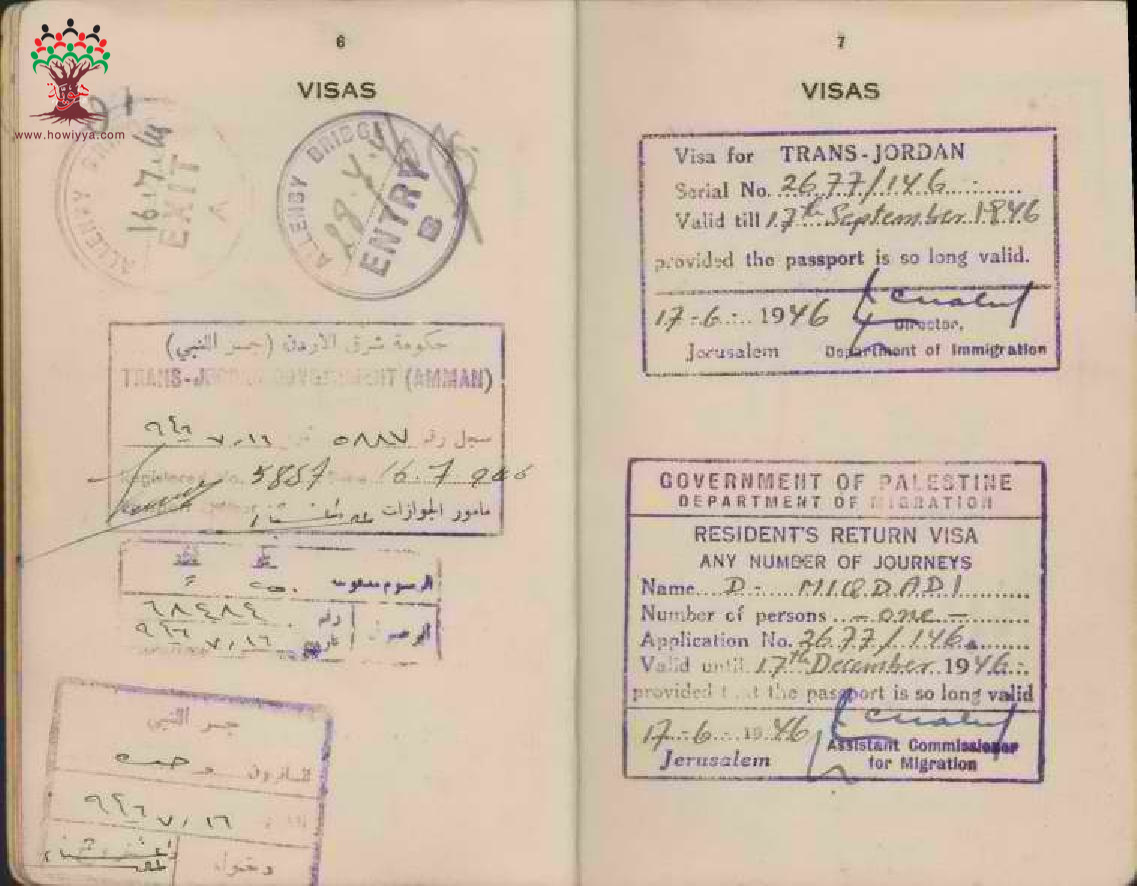 www.howiyya.com
6
VISAS
ALLENBY
16.7.
EXIT
ALLENBY BRIDGE
28.
ENTRY
B
حكومة شرق الاردن (جسر اللنبي)
TRANS-JORDAN GOVERNMENT (AMMAN)
سجل رقم ٥٨٨٧ ٧/١٦ ٩٤٦
Registered No. 5887 Date 16.7.946
مأمور الجوازات
الرسوم مدفوعة
رقم ٦٨٤٨٤
الوصل
تاريخ ٧/١٦ ٩٤٦
جسر اللنبي
٧/١٦ ٩٤٦
دخول
7
VISAS
Visa for TRANS-JORDAN
Serial No. 2677/146
Valid till 17th September 1946
provided the passport is so long valid.
17-6- 1946
Director.
Jerusalem Department of Immigration
GOVERNMENT OF PALESTINE
DEPARTMENT OF MIGRATION
RESIDENT'S RETURN VISA
ANY NUMBER OF JOURNEYS
Name D. MIQDADI
Number of persons - one -
Application No. 2677/146
Valid until 17th December 1946
provided that the passport is so long valid
17-6- 1946
Assistant Commissioner
Jerusalem for Migration